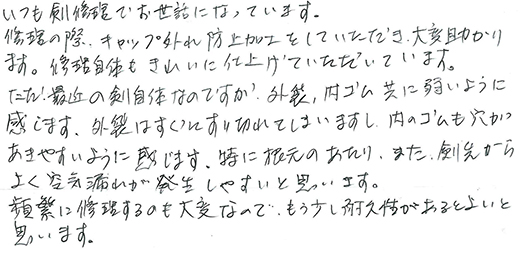 いつも剣修理でお世話になっています。
修理の際、キャップ外れ防止加工をしていただき、大変助かり
ます。修理自体もきれいに仕上げていただいています。
ただ、最近の剣自体なのですが、外製、内ゴム共に弱いように
感じます。外製はすぐにすり切れてしまいますし、内のゴムも穴が
あきやすいように感じます。特に根元のあたり、また、剣先から
よく空気漏れが発生しやすいと思います。
頻繁に修理するのも大変なので、もう少し耐久性があるとよいと
思います。